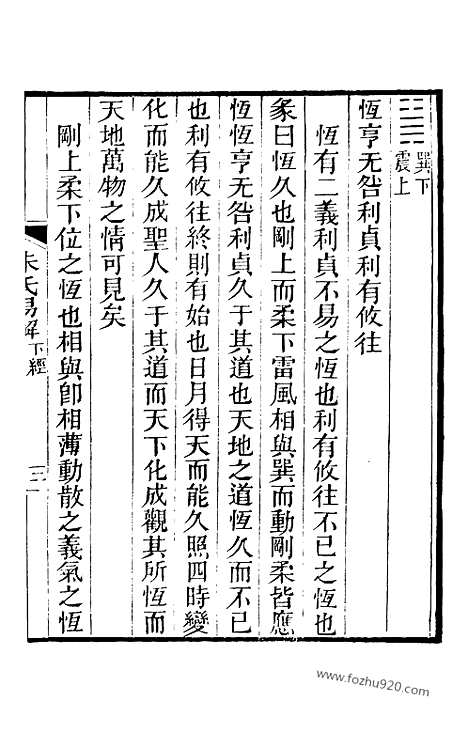 巽下
震上
恆亨无咎利貞利有攸往
恆有二義利貞不易之恆也利有攸往不已之恆也
彖曰恆久也剛上而柔下雷風相與巽而動剛柔皆應
恆恆亨无咎利貞久于其道也天地之道恆久而不已
也利有攸往終則有始也日月得天而能久照四時變
化而能久成聖人久于其道而天下化成觀其所恆而
天地萬物之情可見矣
剛上柔下位之恆也相與卽相薄動散之義氣之恆
朱氏易解 下經 三
www.fozhu920.com